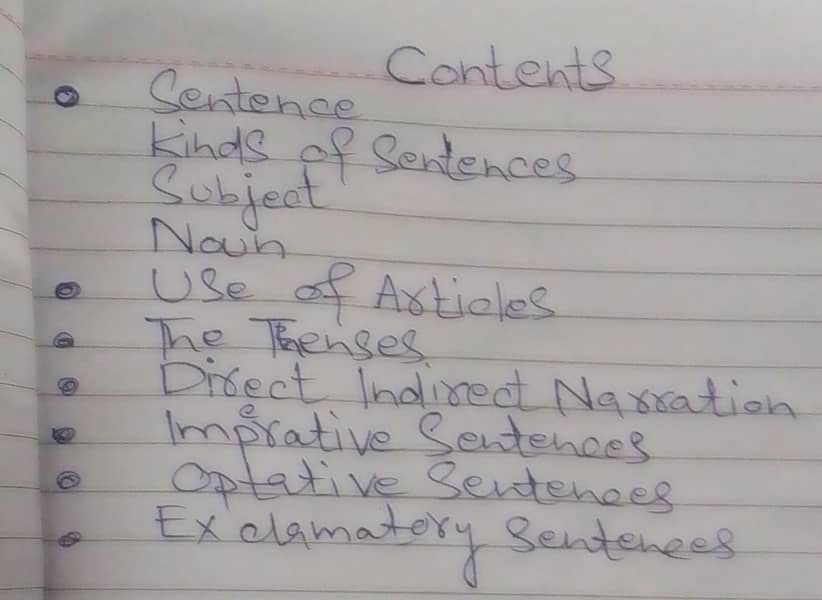 Contents
Sentence
Kinds of Sentences
Subject
Noun
Use of Articles
The Tenses
Direct Indirect Narration
Imperative Sentences
Optative Sentences
Exclamatory Sentences